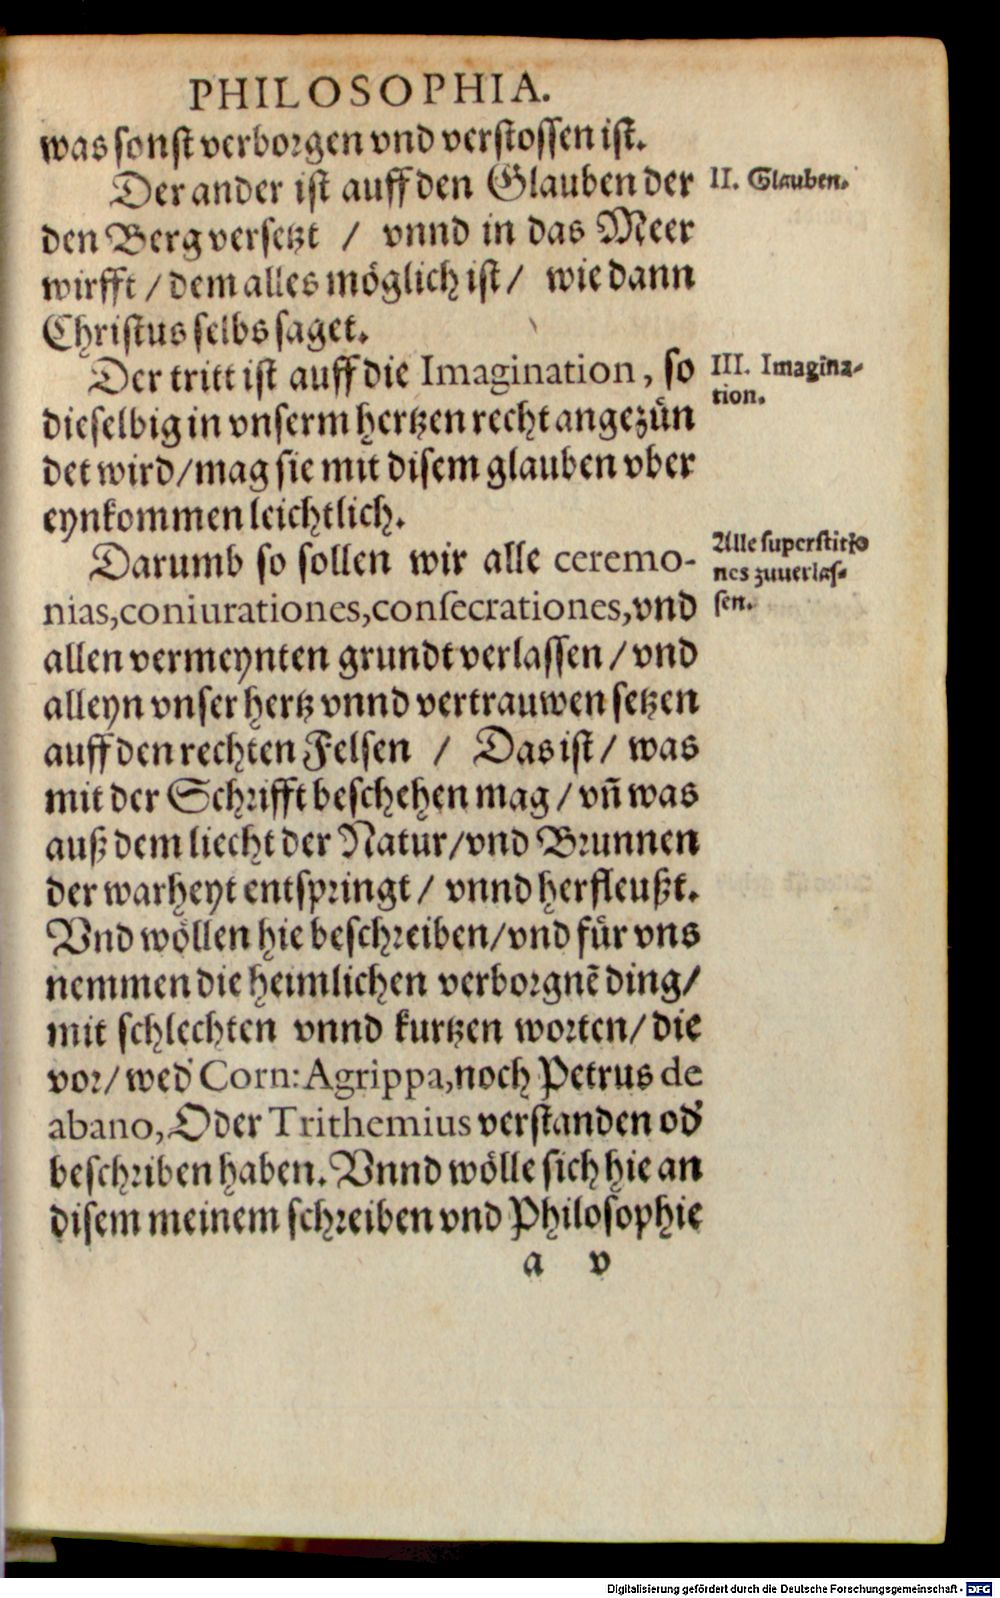 PHILOSOPHIA.
was sonst verborgen vnd verstossen ist.
Der ander ist auff den Glauben der
den Berg versetzt / vnnd in das Meer
wirfft / dem alles möglich ist / wie dann
Christus selbs saget.
Der tritt ist auff die Imagination, so
dieselbig in vnserm hertzen recht angezün
det wird / mag sie mit disem glauben vber
eynkommen leichtlich.
Darumb so sollen wir alle ceremo-
nias, coniurationes, consecrationes, vnd
allen vermeynten grundt verlassen / vnd
alleyn vnser hertz vnnd vertrauwen setzen
auff den rechten Felsen / Das ist / was
mit der Schrifft beschehen mag / vn̄ was
auß dem liecht der Natur / vnd Brunnen
der warheyt entspringt / vnnd herfleußt.
Vnd wöllen hie beschreiben / vnd für vns
nemmen die heimlichen verborgnē ding /
mit schlechten vnnd kurtzen worten / die
vor / wed' Corn: Agrippa, noch Petrus de
abano, Oder Trithemius verstanden od'
beschriben haben. Vnnd wölle sich hie an
disem meinem schreiben vnd Philosophie
a v
II. Glauben.
III. Imagina-
tion.
Alle superstitio
nes zuuerlas-
sen.
Digitalisierung gefördert durch die Deutsche Forschungsgemeinschaft - DFG